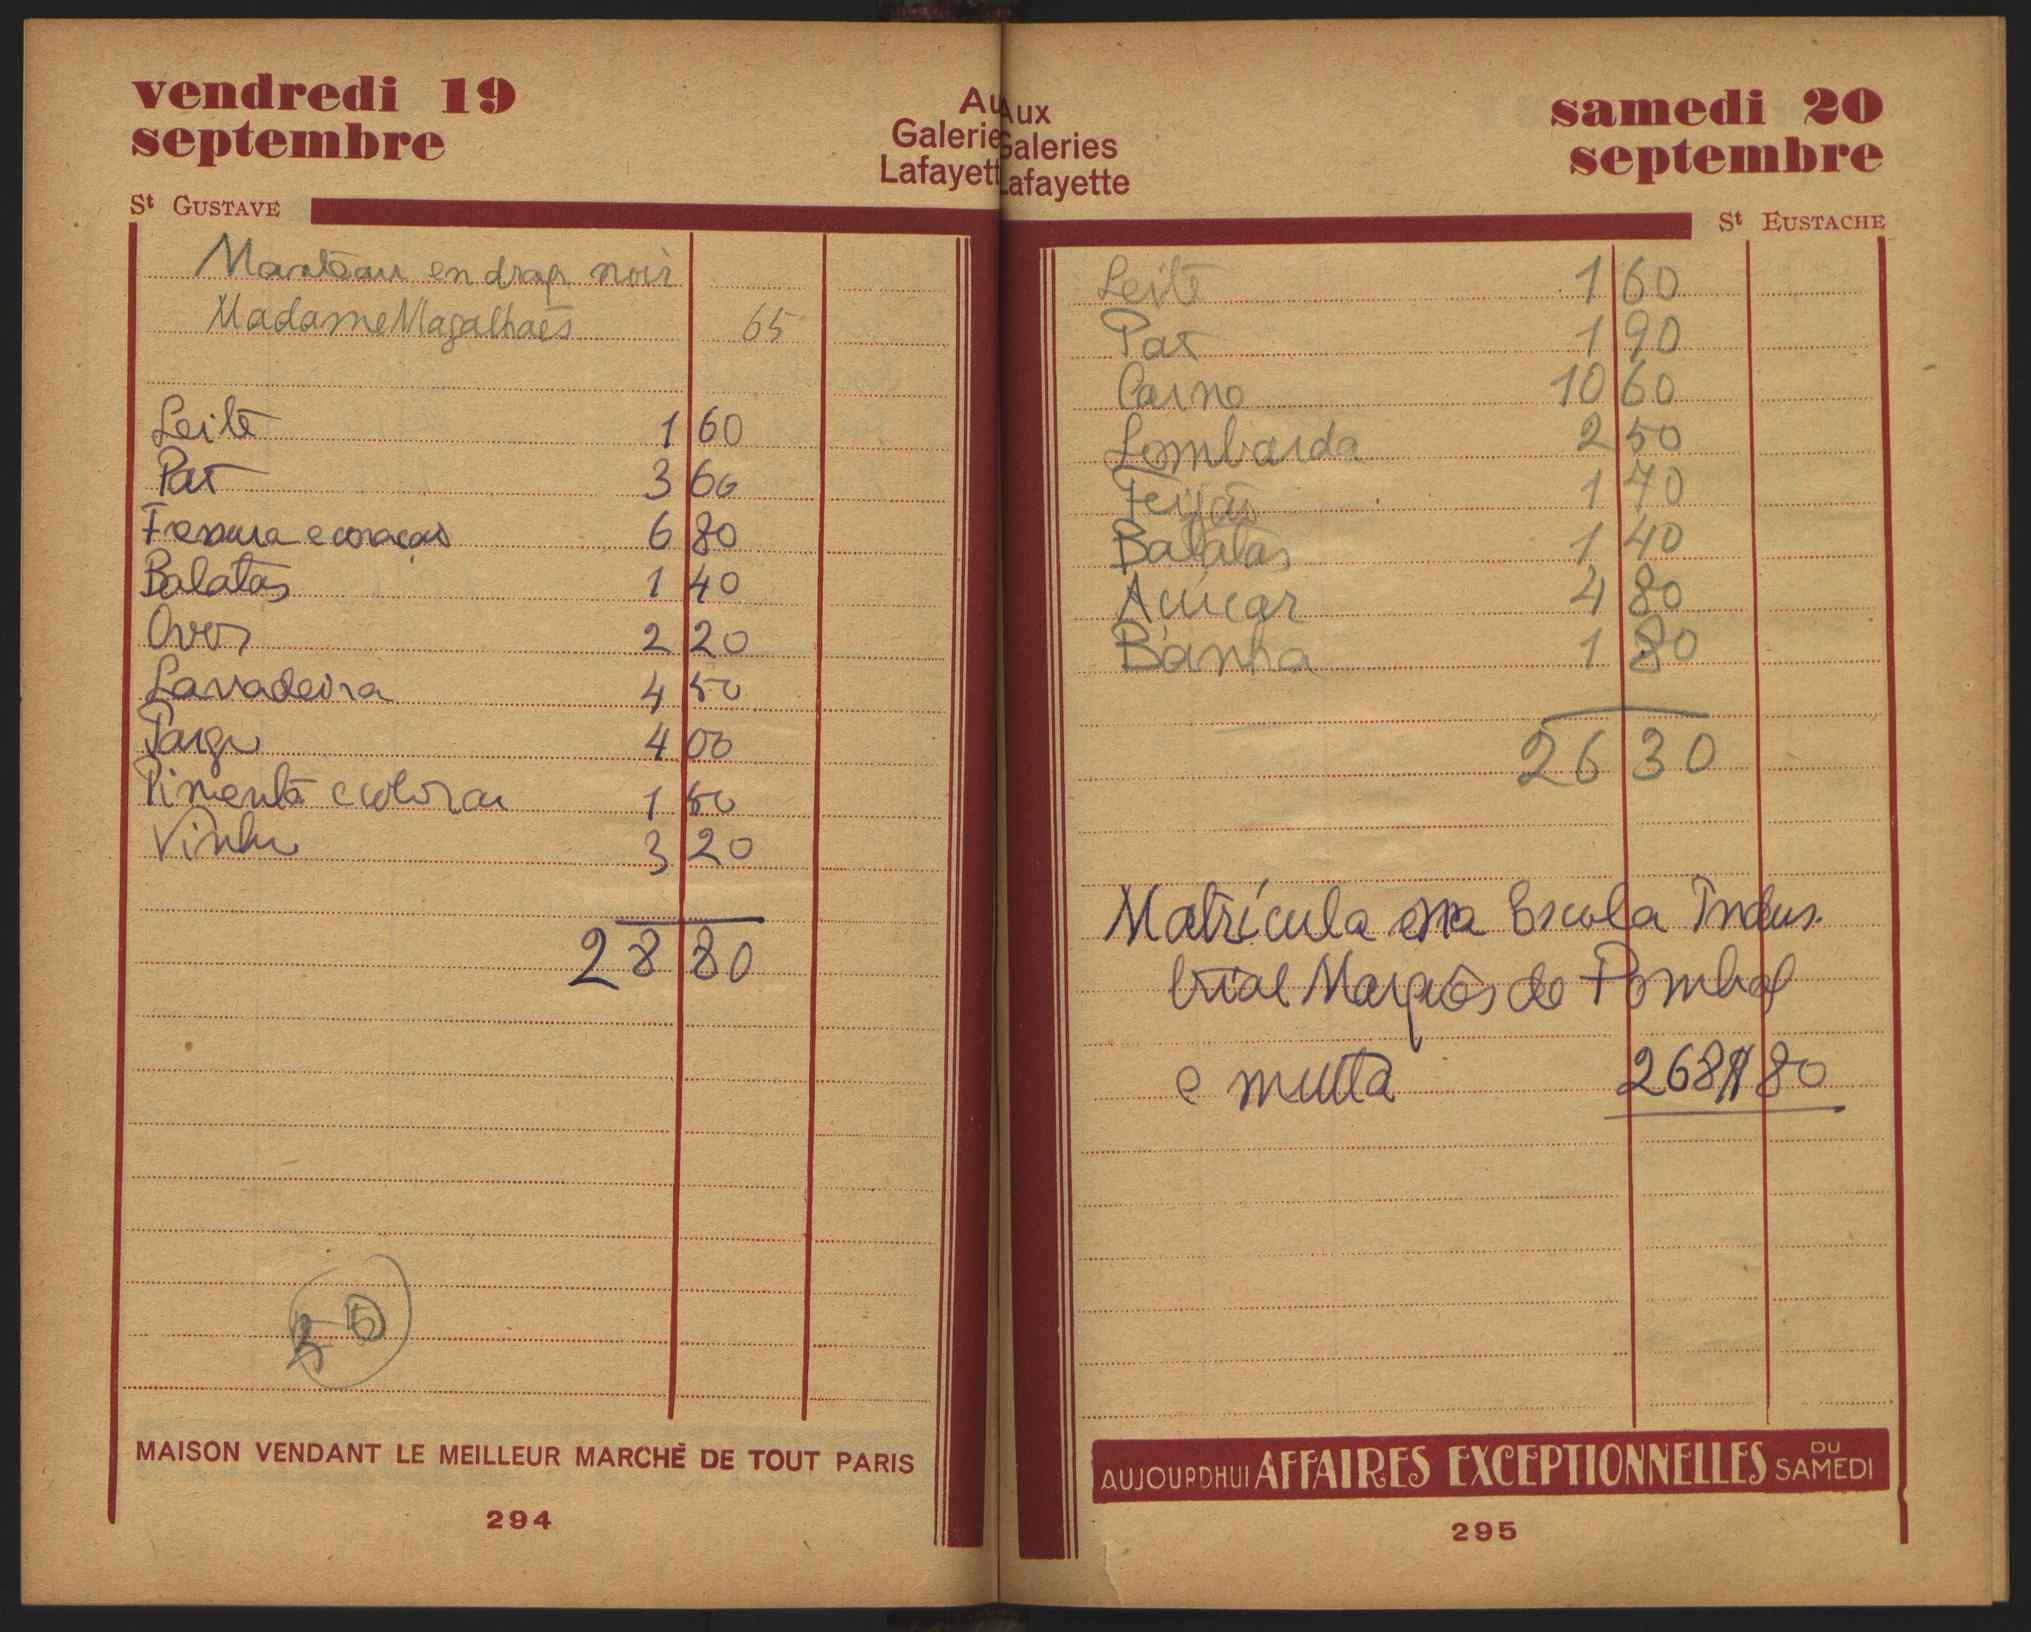 vendredi 19
septembre
Au
Galerie
Lafayett
St GUSTAVE
Manteau en drap noir
Madame Magalhaès 65
Leite 1 60
Pax 3 60
Fressura e coração 6 80
Batatas 1 40
Ovos 2 20
Lavadeira 4 50
Pargo 4 00
Pimenta e colorau 1 50
Vinho 3 20
28 80
MAISON VENDANT LE MEILLEUR MARCHÉ DE TOUT PARIS
294
Aux
Galeries
Lafayette
samedi 20
septembre
St EUSTACHE
Leite 1 60
Pax 1 90
Carne 10 60
Lombarda 2 50
Feijão 1 70
Batatas 1 40
Açúcar 4 80
Banha 1 80
26 30
Matrícula na Escola Indus-
trial Marquês de Pombal
e multa 268$80
AUJOURDHUI AFFAIRES EXCEPTIONNELLES DU SAMEDI
295